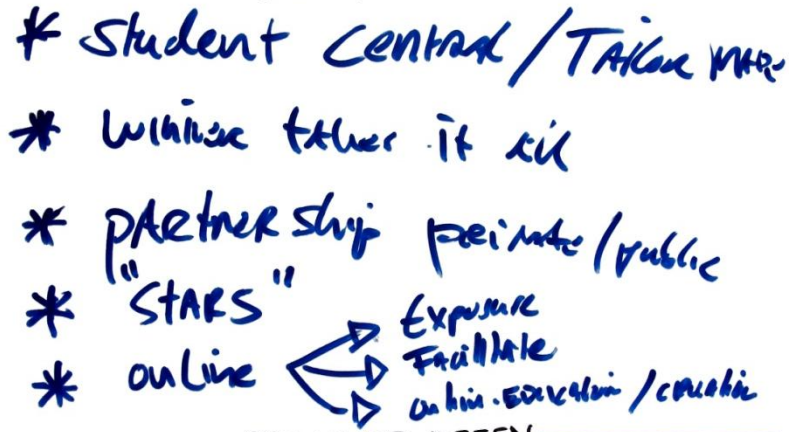 * Student Central / Tailor Made
* Winner takes it all
* Partnership private / public
* "STARS"
* online
Exposure
Facilitate
online education /